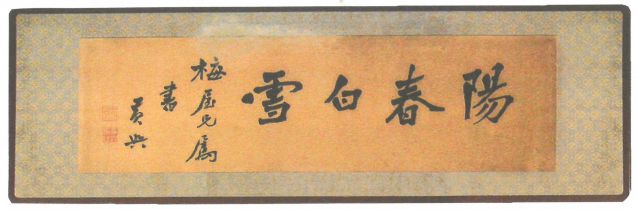 陽春白雪
梅屋兄属
書
黄興